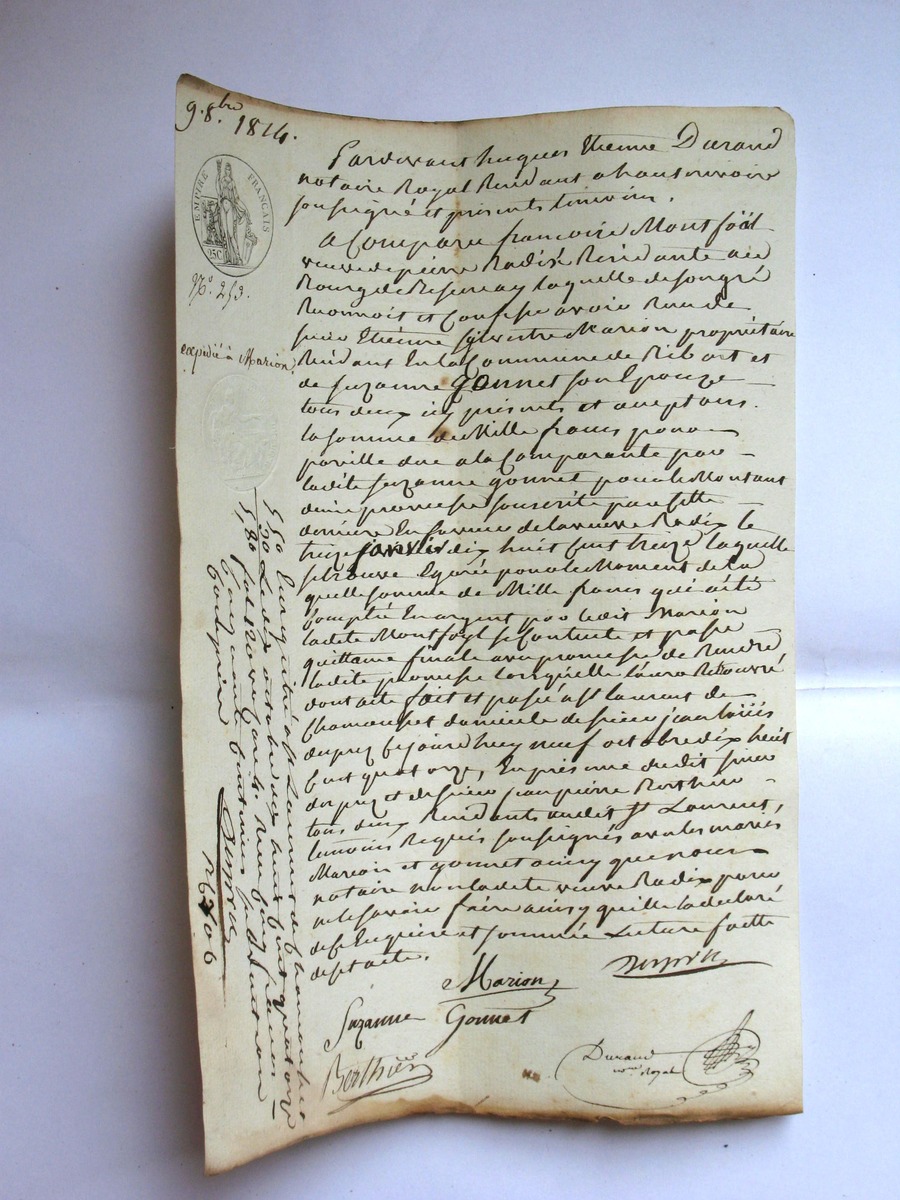 9. 8.bre 1814.
EMPIRE FRANÇAIS
25C
N.o 253.
expédié à Marion
Pardevant hugues Etienne Durand
notaire Royal Residant a hauterivoire
soussigné et présents temoins.
a Comparu françoise Montfoÿl
veuve de pierre Radix Residante au
Bourg de laquelle de son gré
Reconnoit et Confesse avoir Reçu de
sieur Etienne sylvestre Marion propriétaire
Residant En la Commune de et
de suzanne gonnet son Epouze
tous deux icy présents et acceptans.
la somme de Mille francs pour
pareille due a la Comparante par
ladite suzanne gonnet pour le Montant
d'une promesse souscrite par cette
derniere En faveur de la veuve Radix le
treize janvier dix huit cent treize laquelle
se trouve Egarée pour le Moment de la
quelle somme de Mille francs qui a été
Comptée En argent par ledit Marion
ladite Montfoyl se Contente et passe
quittance finale avec promesse de Rendre
ladite promesse lorsquelle l'aura Retrouvé
dont acte fait et passé a St laurent de
Chamousset domicile de sieur jean
dupuy ce jourdhuy neuf octobre dix huit
cent quatorze, En présence dudit sieur
dupuy et de sieur jean pierre Berthier
tous deux Residants audit St Laurent,
temoins Requis soussignés avec les mariés
Marion et gonnet ainsy que nous
notaire non ladite veuve Radix pour
ne le savoir faire ainsy quelle l'a declaré
de ce Enquise et sommée Lecture faitte
desptacte.
Marion
Suzanne Gonnet
Berthier
Durand
nore Royal
Enregistré a St Laurent de Chamousset
Le dix octobre dix huit cent quatorze
fol. 120 v.o Reçu cinq francs
cinquante centimes